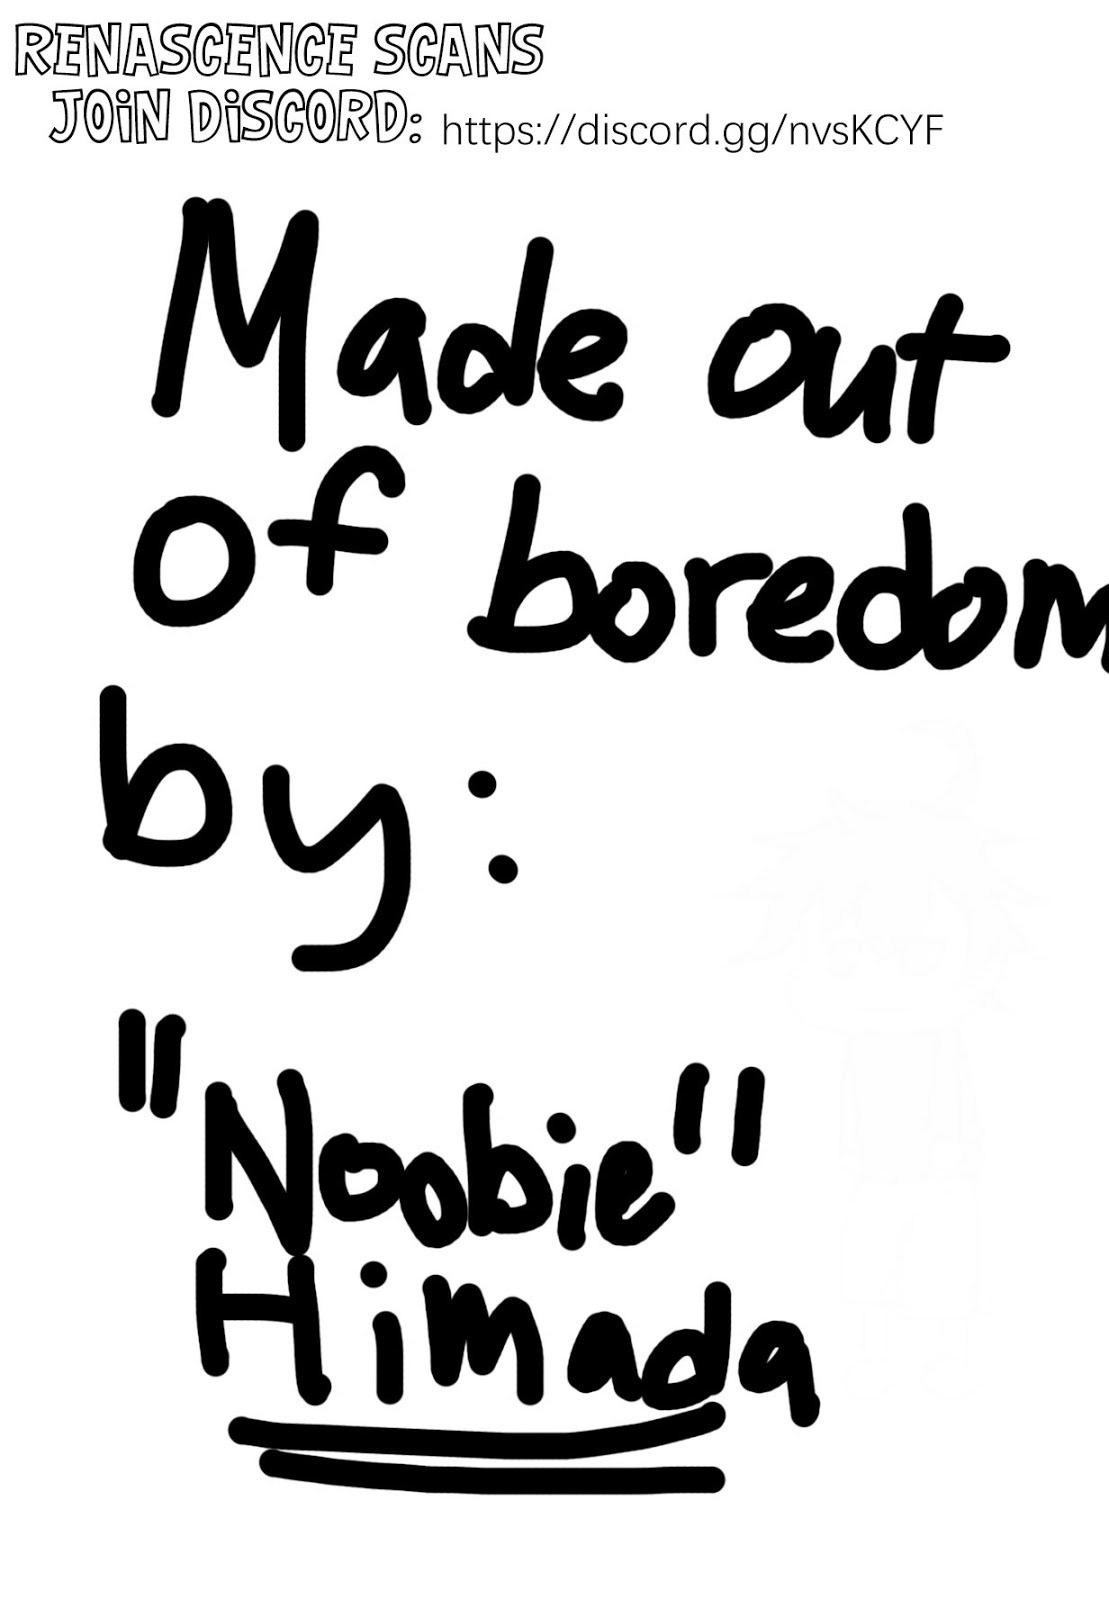 RENASCENCE SCANS
JOiN DiSCORD: https://discord.gg/nvsKCYF
Made out
of boredom
by:
"Noobie"
Himada